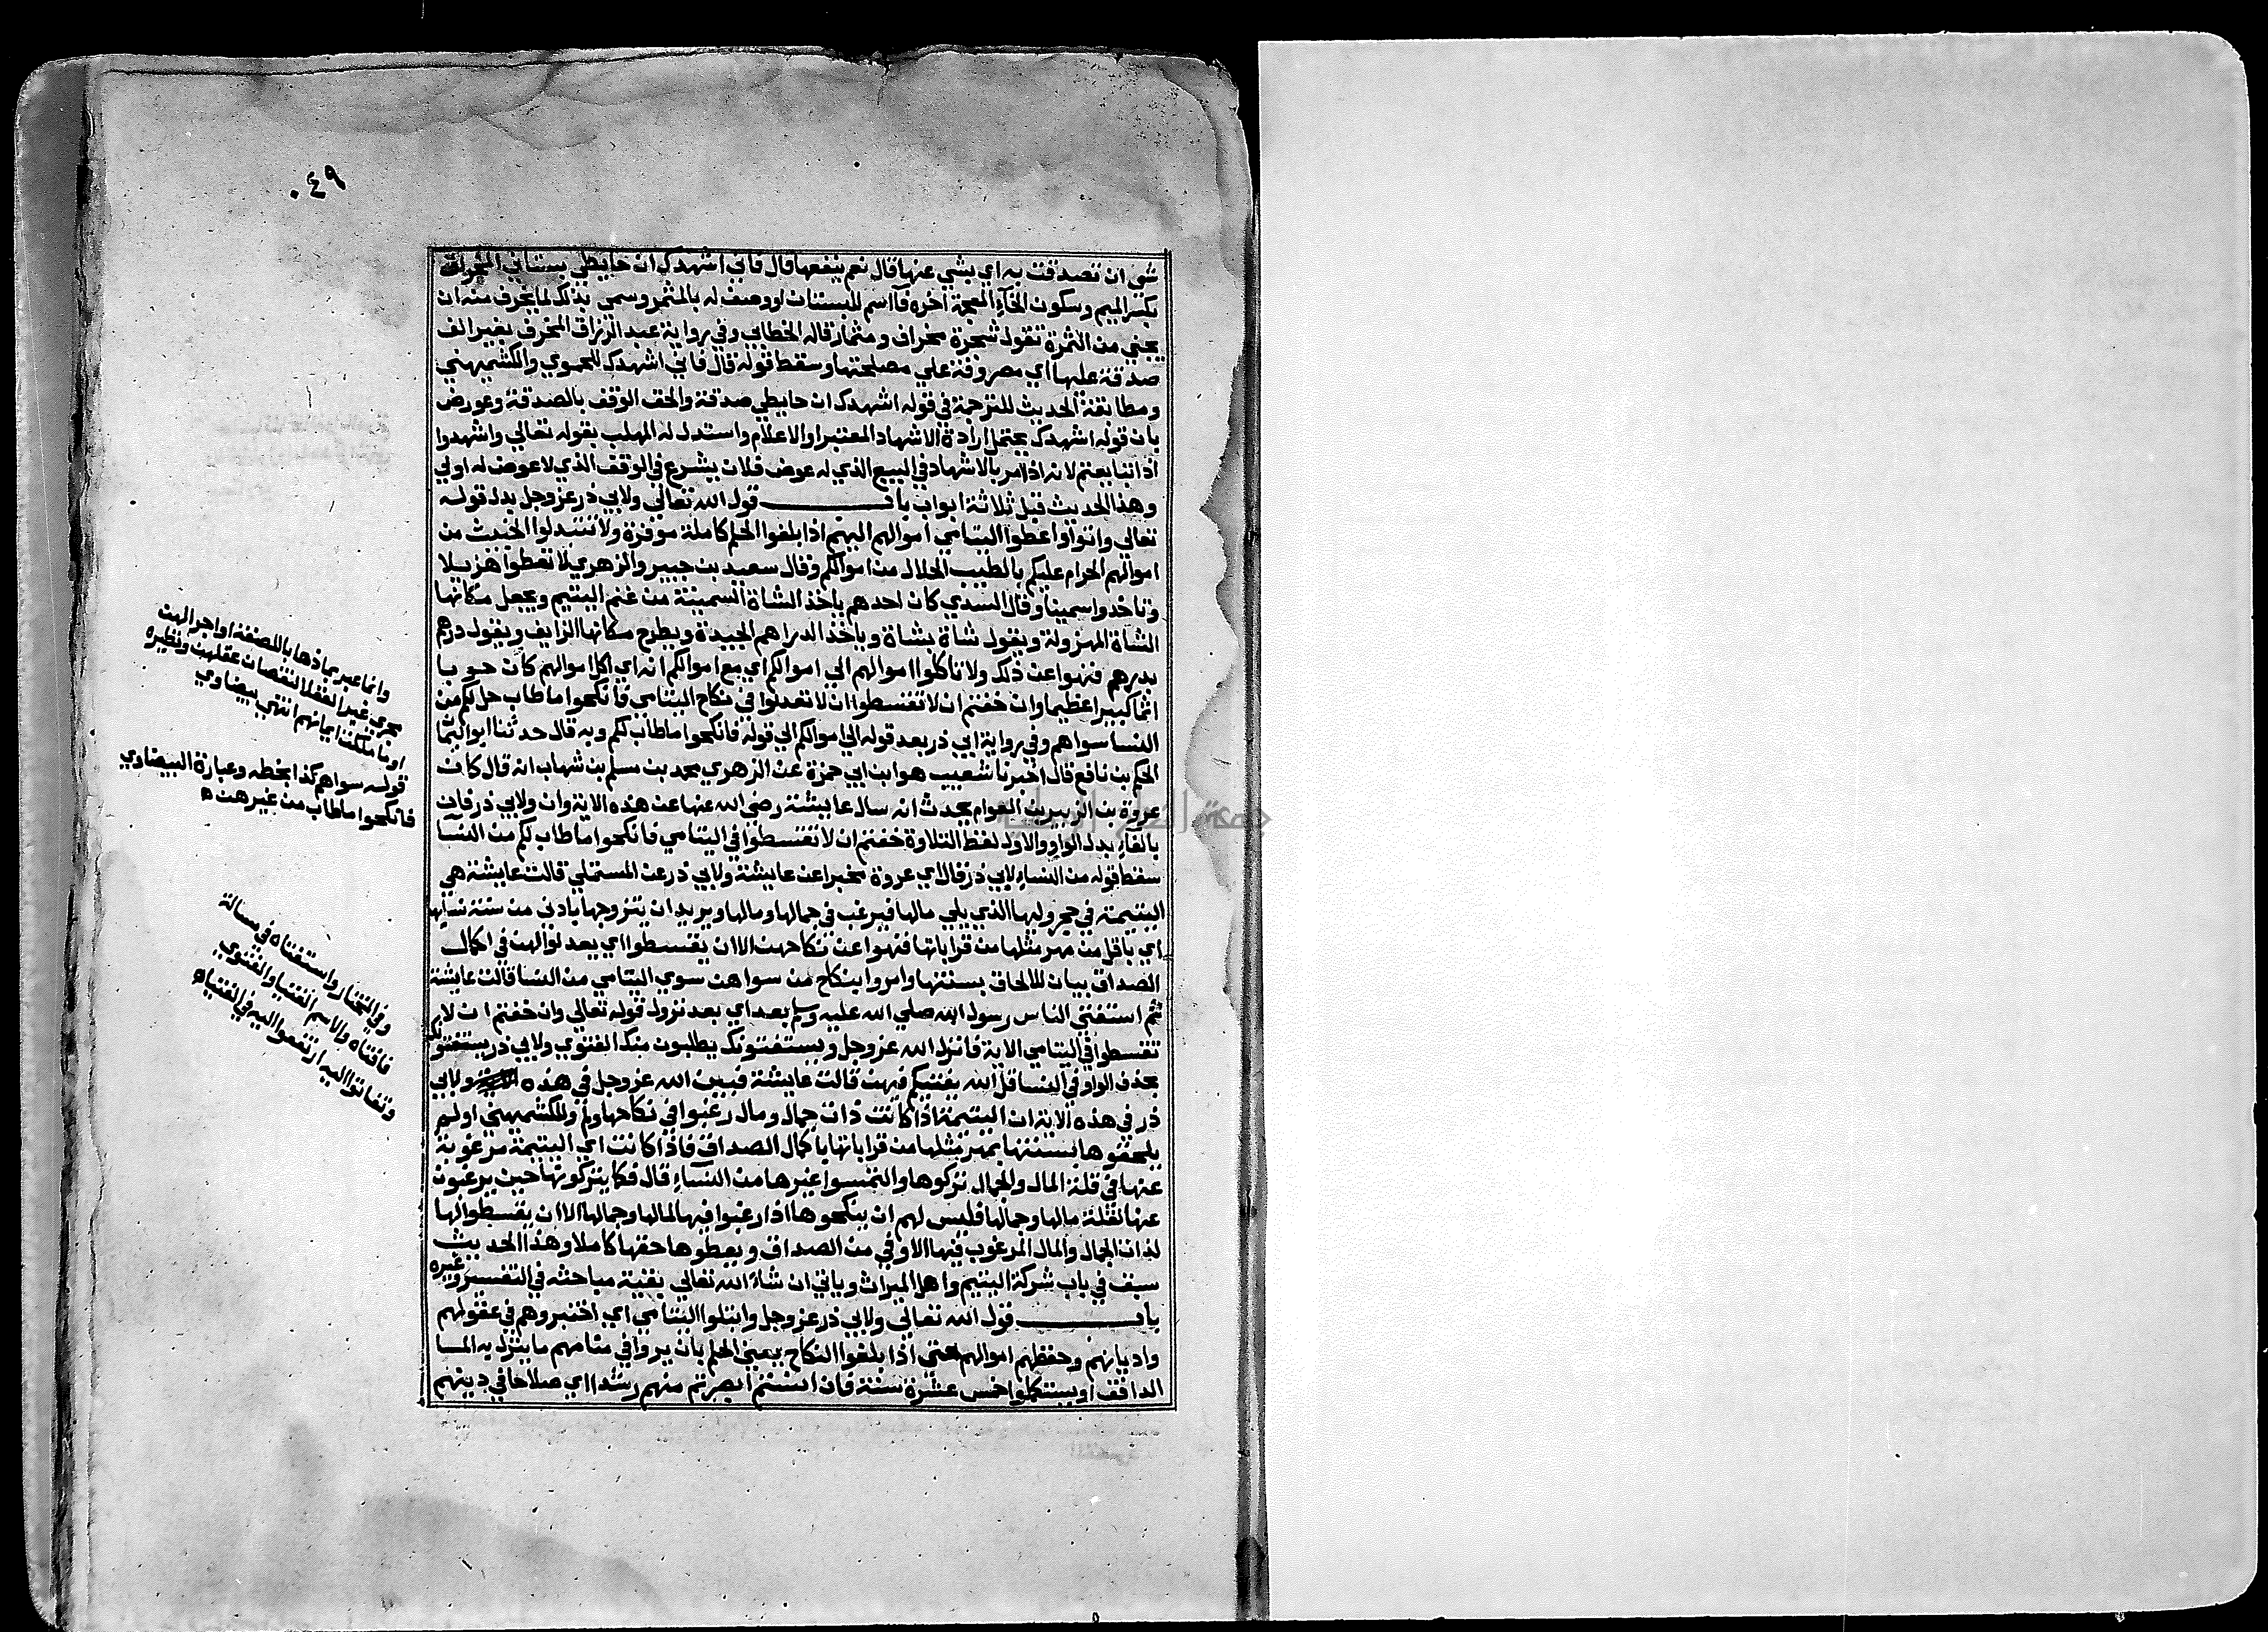 ٠٤٩
شي ان تصدقت به اي بشي عنها قال نعم ينفعها قال فاني اشهدك ان حايطي بستاني المخراف
بكسر الميم وسكون الخاء المعجمة اخره فا اسم للبستان او وصف له بالمثمر وسمي بذلك لما يخرف منه ان
يجني من الثمرة تقول شجرة مخراف ومثمار قاله الخطابي وفي رواية عبد الرزاق المخرف بغير الف
صدقة عليها اي مصروفة علي مصلحتها وسقط قوله قال فاني اشهدك للحموي والكشميهني
ومطابقة الحديث للترجمة في قوله اشهدك ان حايطي صدقة والحق الوقف بالصدقة وعورض
بان قوله اشهدك يحتمل ارادة الاشهاد المعتبر او الاعلام واستدل له المهلب بقوله تعالي واشهدوا
اذا تبايعتم لانه اذا امر بالاشهاد في البيع الذي له عوض فلان يشرع في الوقف الذي لا عوض له اولي
وهذا الحديث قبل ثلاثة ابواب باب قول الله تعالي ولابي ذر عز وجل بدل قوله
تعالي واتوا واعطوا اليتامي اموالهم اليهم اذا بلغوا الحلم كاملة موفرة ولا تتبدلوا الخبيث من
اموالهم الحرام عليكم بالطيب الحلال من اموالكم وقال سعيد بن جبير والزهري لا تعطوا هزيلا
وتاخذوا سمينا وقال السدي كان احدهم ياخذ الشاة السمينة من غنم اليتيم ويجعل مكانها
الشاة المهزولة ويقول شاة بشاة وياخذ الدراهم الجيدة ويطرح مكانها الزايف ويقول درهم
بدرهم فنهوا عن ذلك ولا تاكلوا اموالهم الي اموالكم اي مع اموالكم انه اي اكل اموالهم كان حوبا
اثما كبيرا عظيما وان خفتم ان لا تقسطوا ان لا تعدلوا في نكاح اليتامي فانكحوا ما طاب حل لكم من
النسا سواهم وفي رواية ابي ذر بعد قوله الي اموالكم الي قوله فانكحوا ما طاب لكم وبه قال حدثنا ابو اليما
الحكم بن نافع قال اخبرنا شعيب هو ابن ابي حمزة عن الزهري محمد بن مسلم بن شهاب انه قال كان
عروة بن الزبير بن العوام يحدث انه سال عايشة رضي الله عنها عن هذه الاية وان ولابي ذر فان
بالفاء بدل الواو والاول لفظ التلاوة خفتم ان لا تقسطوا في اليتامي فانكحوا ما طاب لكم من النسا
سقط قوله من النساء لابي ذر قال اي عروة مخبرا عن عايشة ولابي ذر عن المستملي قالت عايشة هي
اليتيمة في حجر وليها الذي يلي مالها فيرغب في جمالها ومالها ويريد ان يتزوجها بادني من سنة نسايها
اي باقل من مهر مثلها من قراباتها فنهوا عن نكاحهن الا ان يقسطوا اي يعدلوا لهن في اكمال
الصداق بيان للالحاق بسنتها وامروا بنكاح من سواهن سوي اليتامي من النسا قالت عايشة
ثم استفتي الناس رسول الله صلي الله عليه وسلم بعد اي بعد نزول قوله تعالي وان خفتم ان لا
تقسطوا في اليتامي الاية فانزل الله عز وجل ويستفتونك يطلبون منك الفتوي ولابي ذر يستفتونك
بحذف الواو في النسا قل الله يفتيكم فيهن قالت عايشة فبين الله عز وجل في هذه ولابي
ذر في هذه الاية ان اليتيمة اذا كانت ذات جمال ومال رغبوا في نكاحها ولم وللكشميهني او لم
يلحقوها بسنتها بمهر مثلها من قراباتها باكمال الصداق فاذا كانت اي اليتيمة مرغوبة
عنها في قلة المال والجمال تركوها والتمسوا غيرها من النساء قال فكما يتركونها حين يرغبون
عنها لقلة مالها وجمالها فليس لهم ان ينكحوها اذا رغبوا فيها لمالها وجمالها الا ان يقسطوا لها
لذات الجمال والمال المرغوب فيها الاوفي من الصداق ويعطوها حقها كاملا وهذا الحديث
سبق في باب شركة اليتيم واهل الميراث وياتي ان شاء الله تعالي بقية مباحثه في التفسير وغيره
باب قول الله تعالي ولابي ذر عز وجل وابتلوا اليتامي اي اختبروهم في عقولهم
واديانهم وحفظهم اموالهم حتي اذا بلغوا النكاح يعني الحلم بان يروا في منامهم ما ينزل به الما
الدافق او يستكملوا خمس عشرة سنة فان انستم ابصرتم منهم رشدا اي صلاحا في دينهم
وانما عبر بما ذهابا للصفة او اجراهن
مجري غير العقلا لنقصان عقلهن ونظيره
او ما ملكت ايمانهم انتهي بيضاوي
قوله سواهم كذا بخطه وعبارة البيضاوي
فانكحوا ما طاب من غيرهن ه
وفي المختار واستفتاه في مسالة
فافتاه والاسم الفتيا والفتوي
وتفاتوا اليه ارتفعوا اليه في الفتيا ه